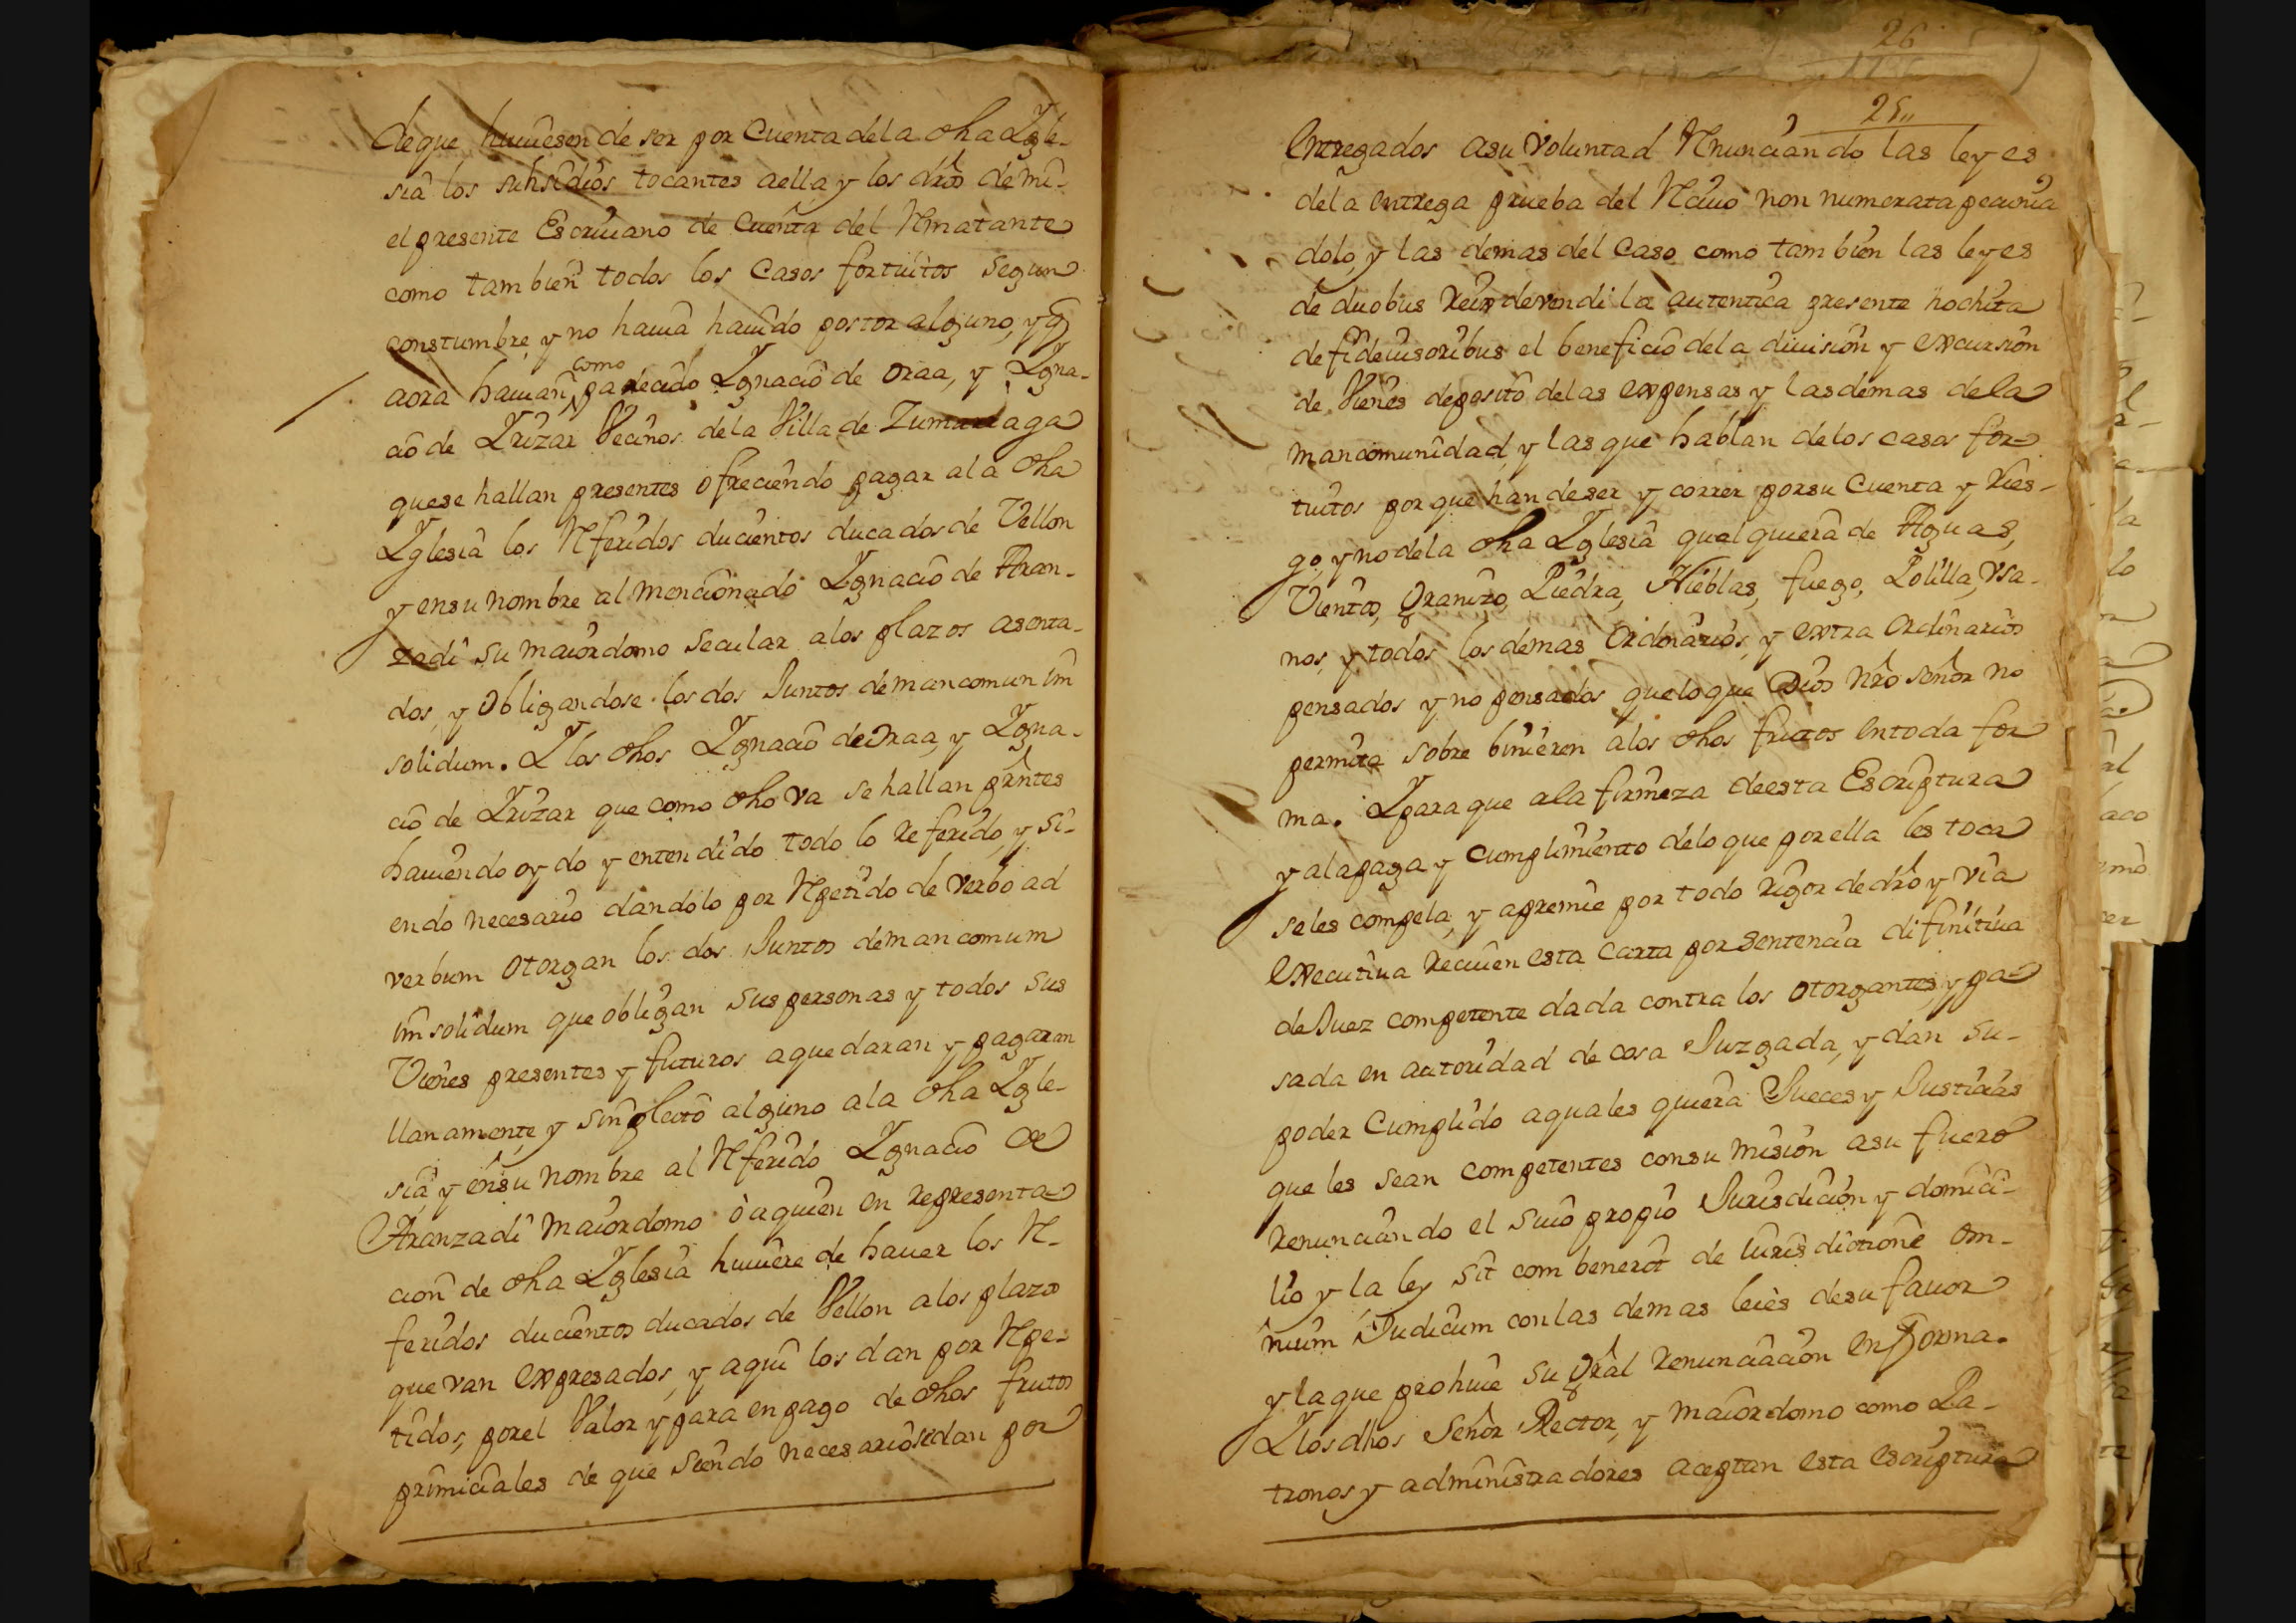 de que huuiesen de ser por Cuenta de la dha Ygle-
sia los subsidios tocantes a ella, y los dros de mi
el presente Escriuano de Cuenta del Rmatante
como tambien todos los Casos fortuitos segun
constumbre, y no hauia hauido postor alguno, y q
como
aora hauian parecido Ygnacio de Oraa, y Ygna-
cio de Yrizar Vecinos de la Villa de Zumarraga
que se hallan presentes ofreciendo pagar a la dha
Yglesia los Rferidos ducientos ducados de Vellon
y en su nombre al mencionado Ygnacio de Aran-
zadi su maiordomo secular a los plazos asenta-
dos, y Obligandose los dos Juntos de mancomun im
solidum. Y los dhos Ygnacio de Oraa, y Ygna-
cio de Yrizar que como dho va se hallan prntes
hauiendo oydo y entendido todo lo referido, y si-
endo necesario dandolo por Rpetido de verbo ad
verbum Otorgan los dos Juntos de mancomum
im solidum que obligan sus personas y todos sus
Vienes presentes y futuros a que daran y pagaran
llanamente, y sin pleito alguno a la dha Ygle-
sia, y en su nombre al Rferido Ygnacio de
Aranzadi maiordomo ò a quien en representa-
cion de dha Yglesia huuiere de hauer los R-
feridos ducientos ducados de Vellon a los plazos
que van expresados, y aqui los dan por Rpe-
tidos, por el Valor y para en pago de dhos frutos
primiciales de que siendo necesario se dan por
26
25
Entregados a su voluntad Rnunciando las leyes
de la entrega prueba del Rciuo non numerata pecunia
dolo, y las demas del caso como tambien las leyes
de duobus reix devendi la autentica presente hochita
de fideiusoribus el beneficio de la diuision y excursion
de Vienes deposito de las expensas y las demas de la
mancomunidad, y las que hablan de los casos for-
tuitos por que han de ser y correr por su Cuenta y Ries-
go, y no de la dha Yglesia qualquiera de Aguas,
Vientos, Granizo, Piedra, Nieblas, fuego, Polilla, Vsa-
nos, y todos los demas Ordinarios, y extra Ordinarios
pensados y no pensados que lo que Dios nro señor no
permita sobre binieren a los dhos frutos en toda for
ma. Y para que a la firmeza de esta Escriptura
y a la paga y cumplimiento de lo que por ella les toca
se les compela, y apremie por todo rigor de dro y via
executiua reciuen esta carta por sentencia difinitiua
de Juez competente dada contra los otorgantes, y pa-
sada en autoridad de cosa Juzgada, y dan su
poder Cumplido a quales quiera Jueces y Justicias
que les sean competentes con su mision a su fuero
renunciando el suio propio Jurisdicion y domici-
lio y la ley sit com benerit de iurisdictione om-
nium Judicum con las demas leies de su fauor
y la que prohiue su gral renunciacion en forma.
Y los dhos Señor Rector, y maiordomo como Pa-
tronos y administradores aceptan esta escriptura